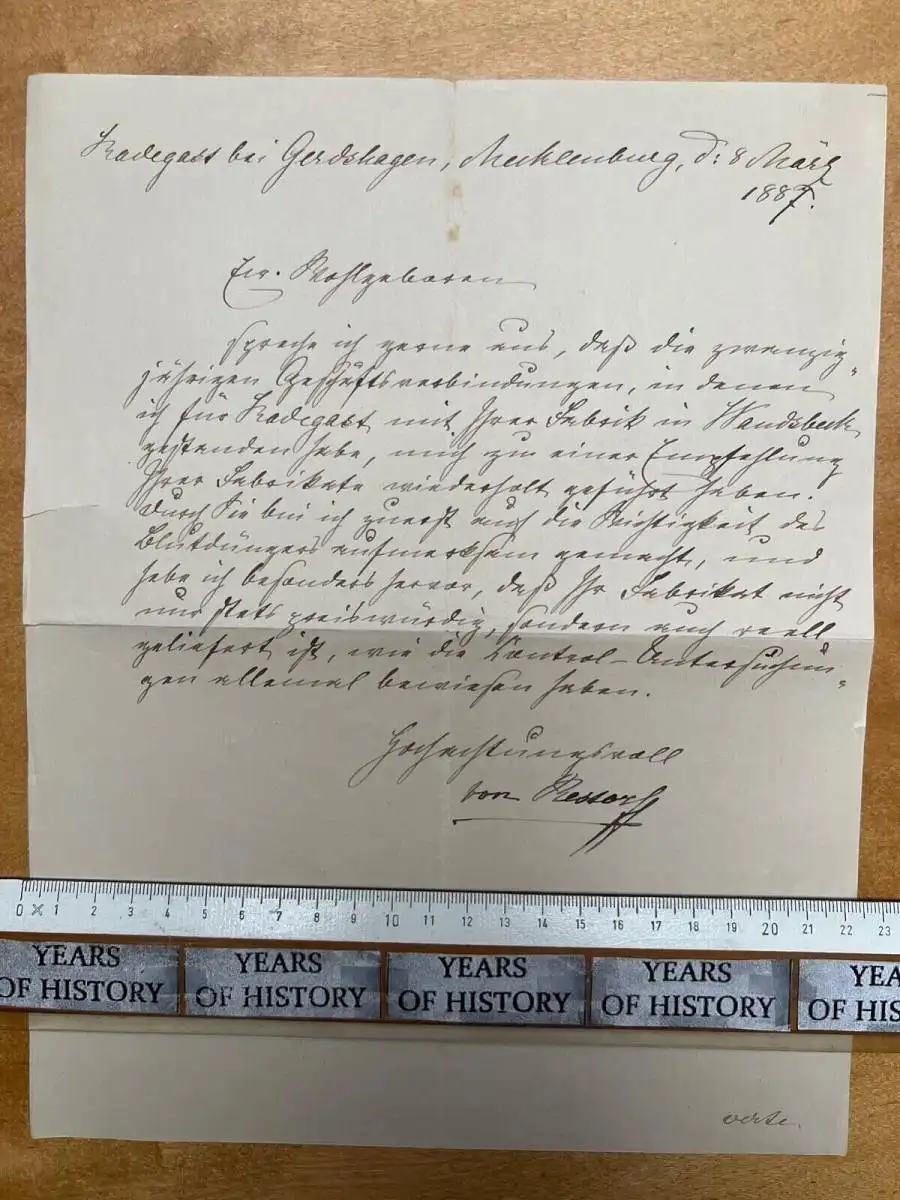 Radegast bei Gerdshagen, Mecklenburg, d: 8 März
1887.
Ew. Wohlgeboren
spreche ich gerne aus, daß die zwanzig-
jährigen Geschäftsverbindungen, in denen
ich für Radegast mit Ihrer Fabrik in Wandsbeck
gestanden habe, mich zu einer Empfehlung
Ihrer Fabrikate wiederholt geführt haben.
Durch Sie bin ich zuerst auf die Wichtigkeit des
Blutdüngers aufmerksam gemacht, und
hebe ich besonders hervor, daß Ihr Fabrikat nicht
nur stets preiswürdig, sondern auch reell
geliefert ist, wie die Control-Untersuchun-
gen allemal bewiesen haben.
Hochachtungsvoll
von Restorff
0 1 2 3 4 5 6 7 8 9 10 11 12 13 14 15 16 17 18 19 20 21 22 23
YEARS OF HISTORY YEARS OF HISTORY YEARS OF HISTORY YEARS OF HISTORY YEA
OF HIS
verte.